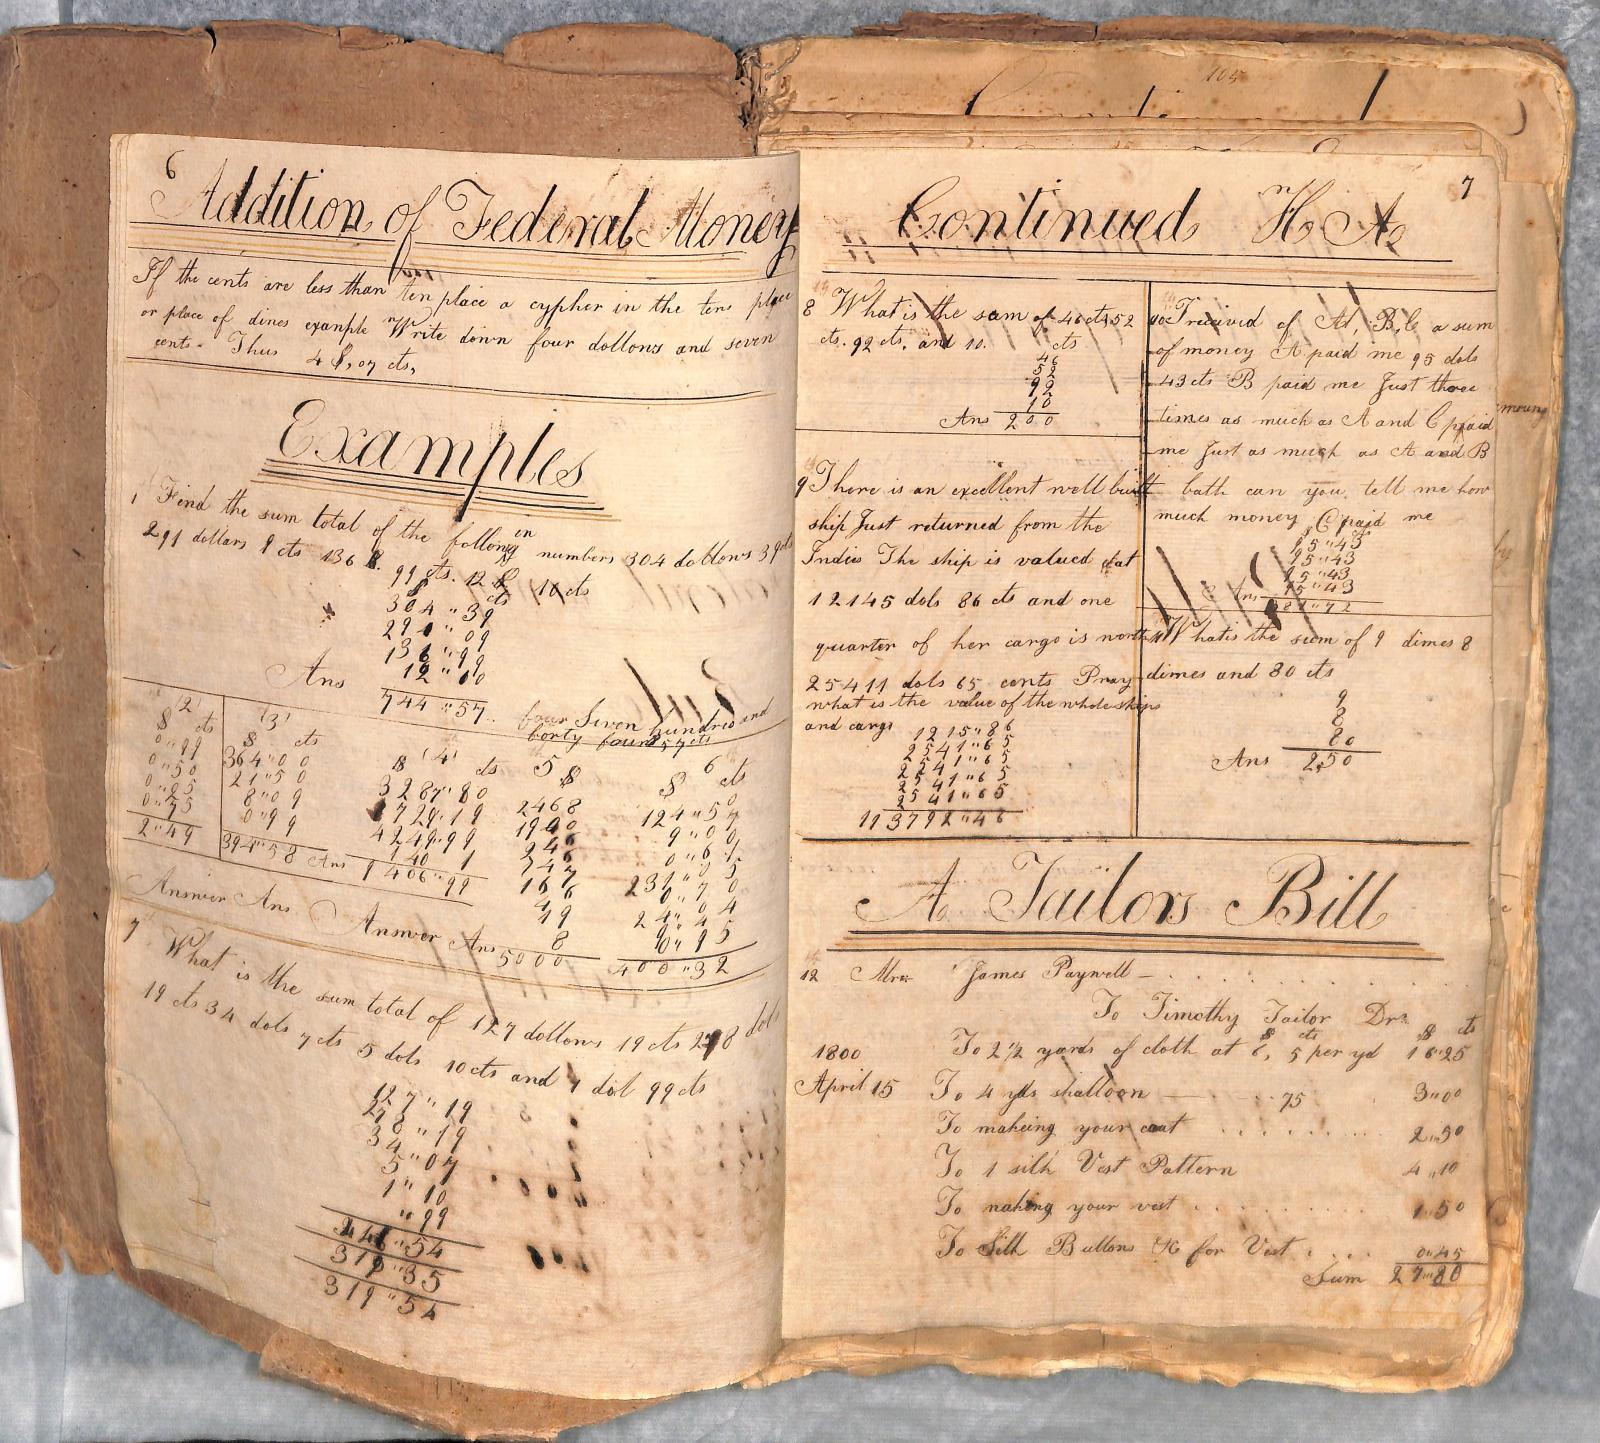 6
Addition of Federal Money
If the cents are less than ten place a cypher in the tens place
or place of dines example Write down four dollons and seven
cents. Thus 4 $, 07 cts,
Examples
1 Find the sum total of the following numbers 304 dollons 39 cts
291 dollars 9 cts 136 $. 99 cts. 12 $ 10 cts
$ cts
304 " 39
291 " 09
136 " 99
12 " 10
Ans 744 " 57
four Seven hundred and
forty four 57 cts
(2)
$ cts
0 " 99
0 " 50
0 " 25
0 " 75
2 " 49
(3)
$ cts
364 " 0 0
21 " 50
8 " 09
0 " 99
394 " 58
Ans
(4)
$ cts
3287 " 80
1729 " 19
4249 " 99
140 1
9406 " 99
5 $
2468
1900
246
146
167
49
19
8
5000
6
$ cts
124 " 50
9 " 07
0 " 60
231 "
0 " 70
24 "
9 "
0 " 95
400 " 32
Answer Ans Answer Ans
7 What is the sum total of 127 dollons 19 cts 278 dols
19 cts 34 dols 7 cts 5 dols 10 cts and 1 dol 99 cts
127 " 19
278 " 19
34 " 07
5 "
1 " 10
" 99
" 54
319 " 35
319 " 54
7
Continued H A
8 What is the sum of 46 cts 52
cts. 92 cts. and 10. cts
46
52
92
10
Ans 200
9 There is an excellent well built
ship Just returned from the
Indies The ship is valued at
12145 dols 86 ct and one
quarter of her cargo is north
25411 dols 65 cents Pray
what is the value of the whole ships
and cargo
1215 " 86
2541 " 65
2541 " 65
2541 " 65
2541 " 65
113792 " 46
10 I received of A, B, C a sum
of money A paid me 95 dols
43 cts B paid me Just three
times as much as A and C paid
me Just as much as A and B
bath can you tell me how
much money C paid me
95 " 43
95 " 43
95 " 43
95 " 43
Ans 381 " 72
11 What is the sum of 9 dimes 8
dimes and 80 cts
9
8
80
Ans 2,50
A Tailors Bill
12 Mr James Paywell
To Timothy Tailor Dr
$ cts $ cts
1800 To 2 1/2 yards of cloth at 6, 5 per yd 16 " 25
April 15 To 4 yds shalloon 75 3 " 00
To makeing your coat 2 " 50
To 1 silk Vest Pattern 4 " 10
To making your vest 1 " 50
To Silk Buttons &c for Vest 0 " 45
Sum 27 " 80